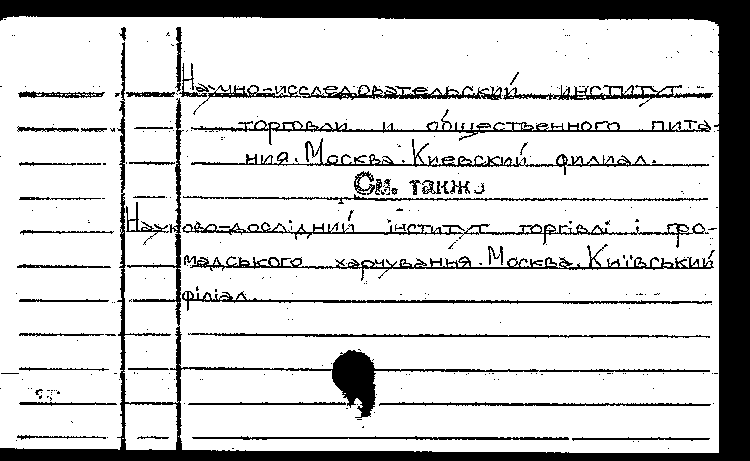 Научно-исследовательский институт
торговли и общественного пита-
ния. Москва. Киевский филиал.
См. также
Науково-дослідний інститут торгівлі і гро-
мадського харчування. Москва. Київський
філіал.